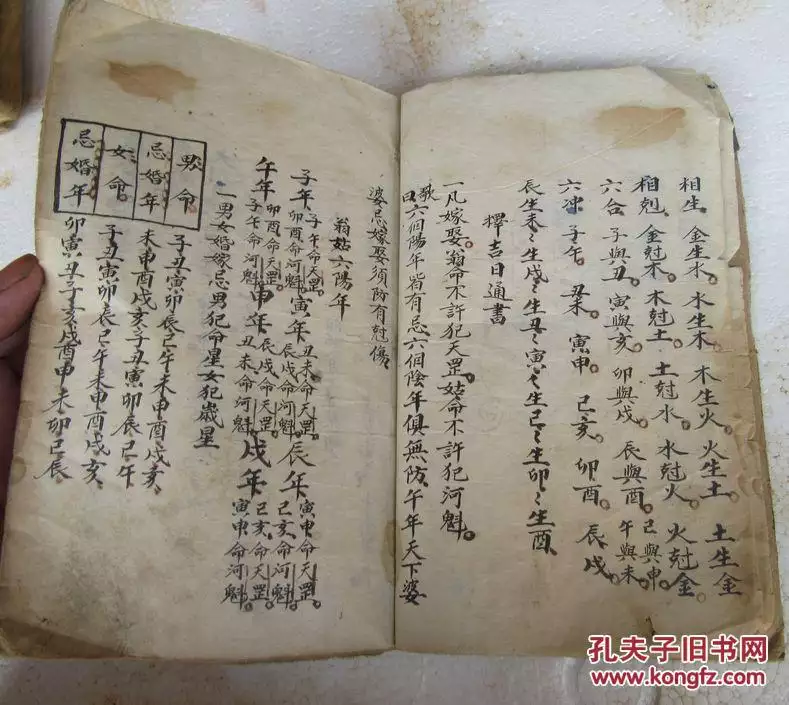 相生 金生水 水生木 木生火 火生土 土生金
相剋 金尅木 木尅土 土尅水 水尅火 火尅金
六合 子與丑 寅與亥 卯與戌 辰與酉 巳與申 午與未
六冲 子午 丑未 寅申 巳亥 卯酉 辰戌
辰生未〻生戌〻生丑〻寅〻生巳〻生卯〻生酉
擇吉日通書
一凡嫁娶翁命不許犯天罡姑命不許犯河魁
歌曰六個陽年皆有忌六個陰年俱無防午年天下婆
婆忌嫁娶須防有尅傷
翁姑六陽年
子年 子午命天罡 卯酉命河魁 寅年 丑未命天罡 辰戌命河魁 辰年 寅申命天罡 巳亥命河魁
午年 卯酉命天罡 子午命河魁 申年 辰戌命天罡 丑未命河魁 戌年 巳亥命天罡 寅申命河魁
一男女婚嫁忌男犯命星女犯歲星
男命 子丑寅卯辰巳午未申酉戌亥
忌婚年 未申酉戌亥子丑寅卯辰巳午
女命 子丑寅卯辰巳午未申酉戌亥
忌婚年 卯寅丑子亥戌酉申未卯巳辰
孔夫子旧书网
www.kongfz.com